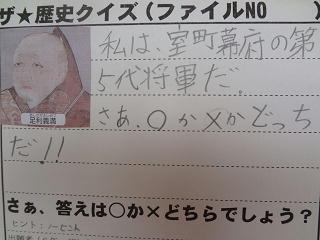 ザ★歴史クイズ(ファイルNO )
私は、室町幕府の第
5代将軍だ。
足利義満
さあ、○か×かどっち
だ!!
さぁ、答えは○か×どちらでしょう?
ヒント:ノーヒント